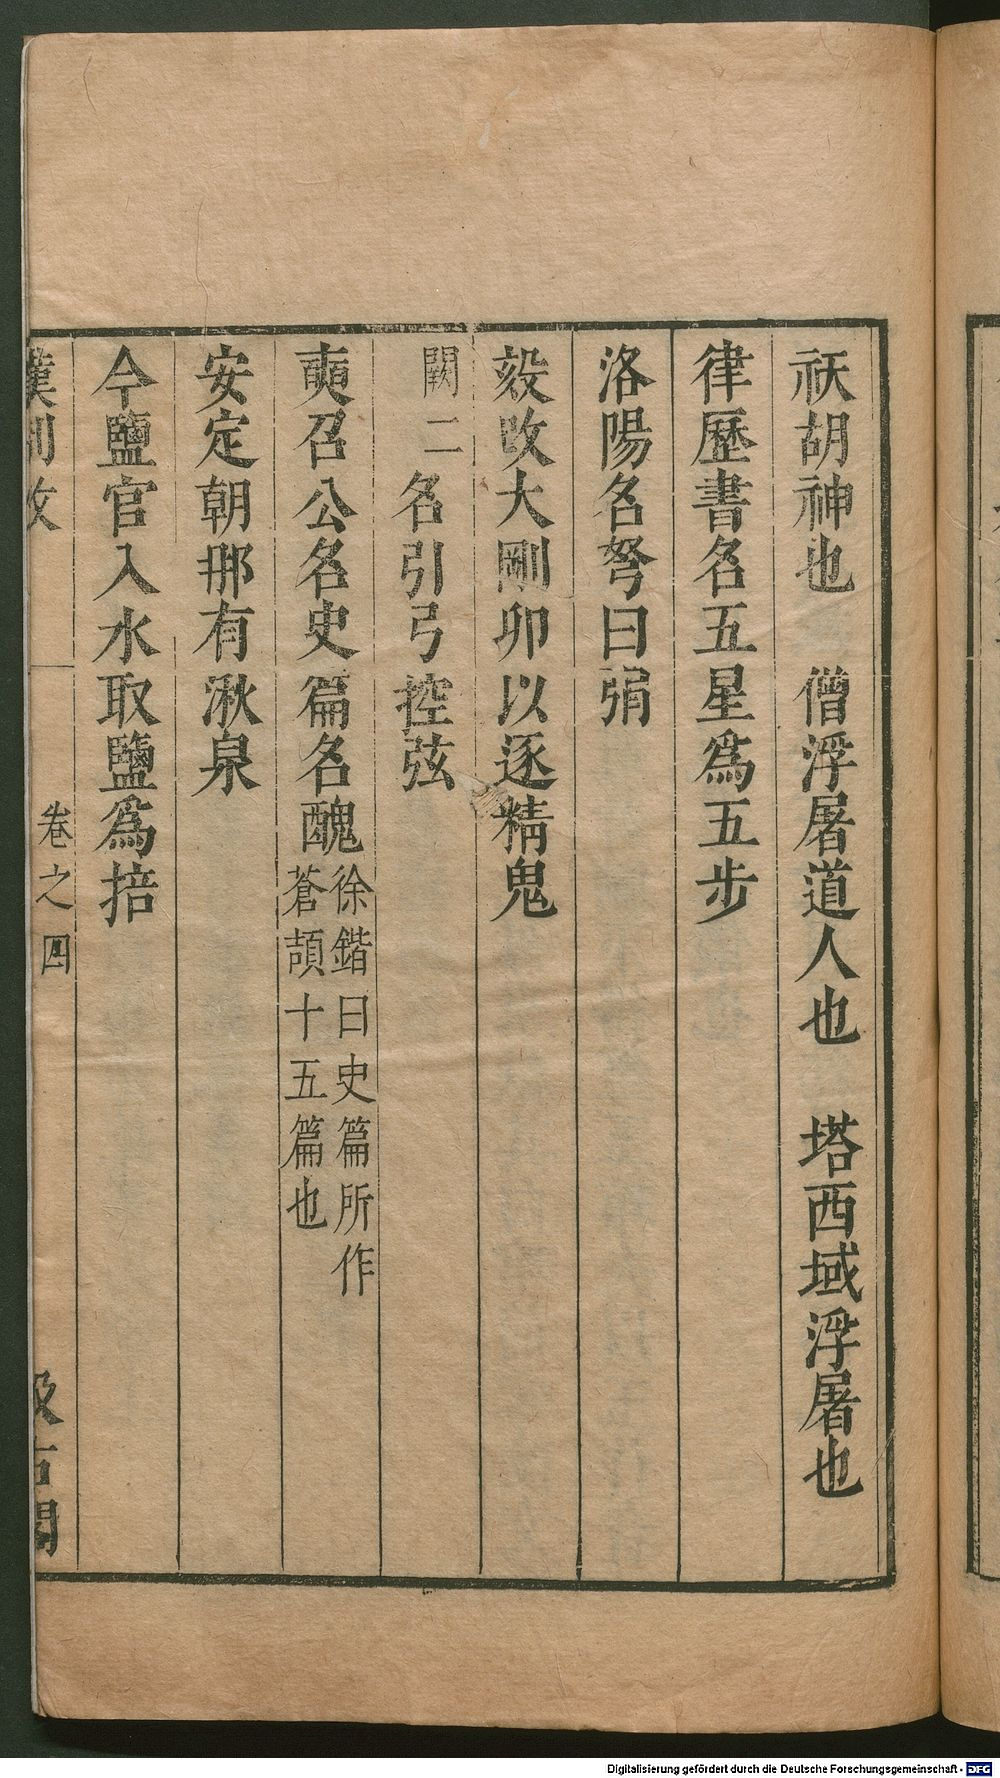 祆胡神也　僧浮屠道人也　塔西域浮屠也
律歷書名五星爲五步
洛陽名弩曰弲
毅攺大剛卯以逐精鬼
闕二名引弓控弦
奭召公名史篇名醜徐鍇曰史篇所作蒼頡十五篇也
安定朝𨙻有湫泉
今鹽官入水取鹽爲掊
漢制攷　卷之四　汲古閣
Digitalisierung gefördert durch die Deutsche Forschungsgemeinschaft - DFG